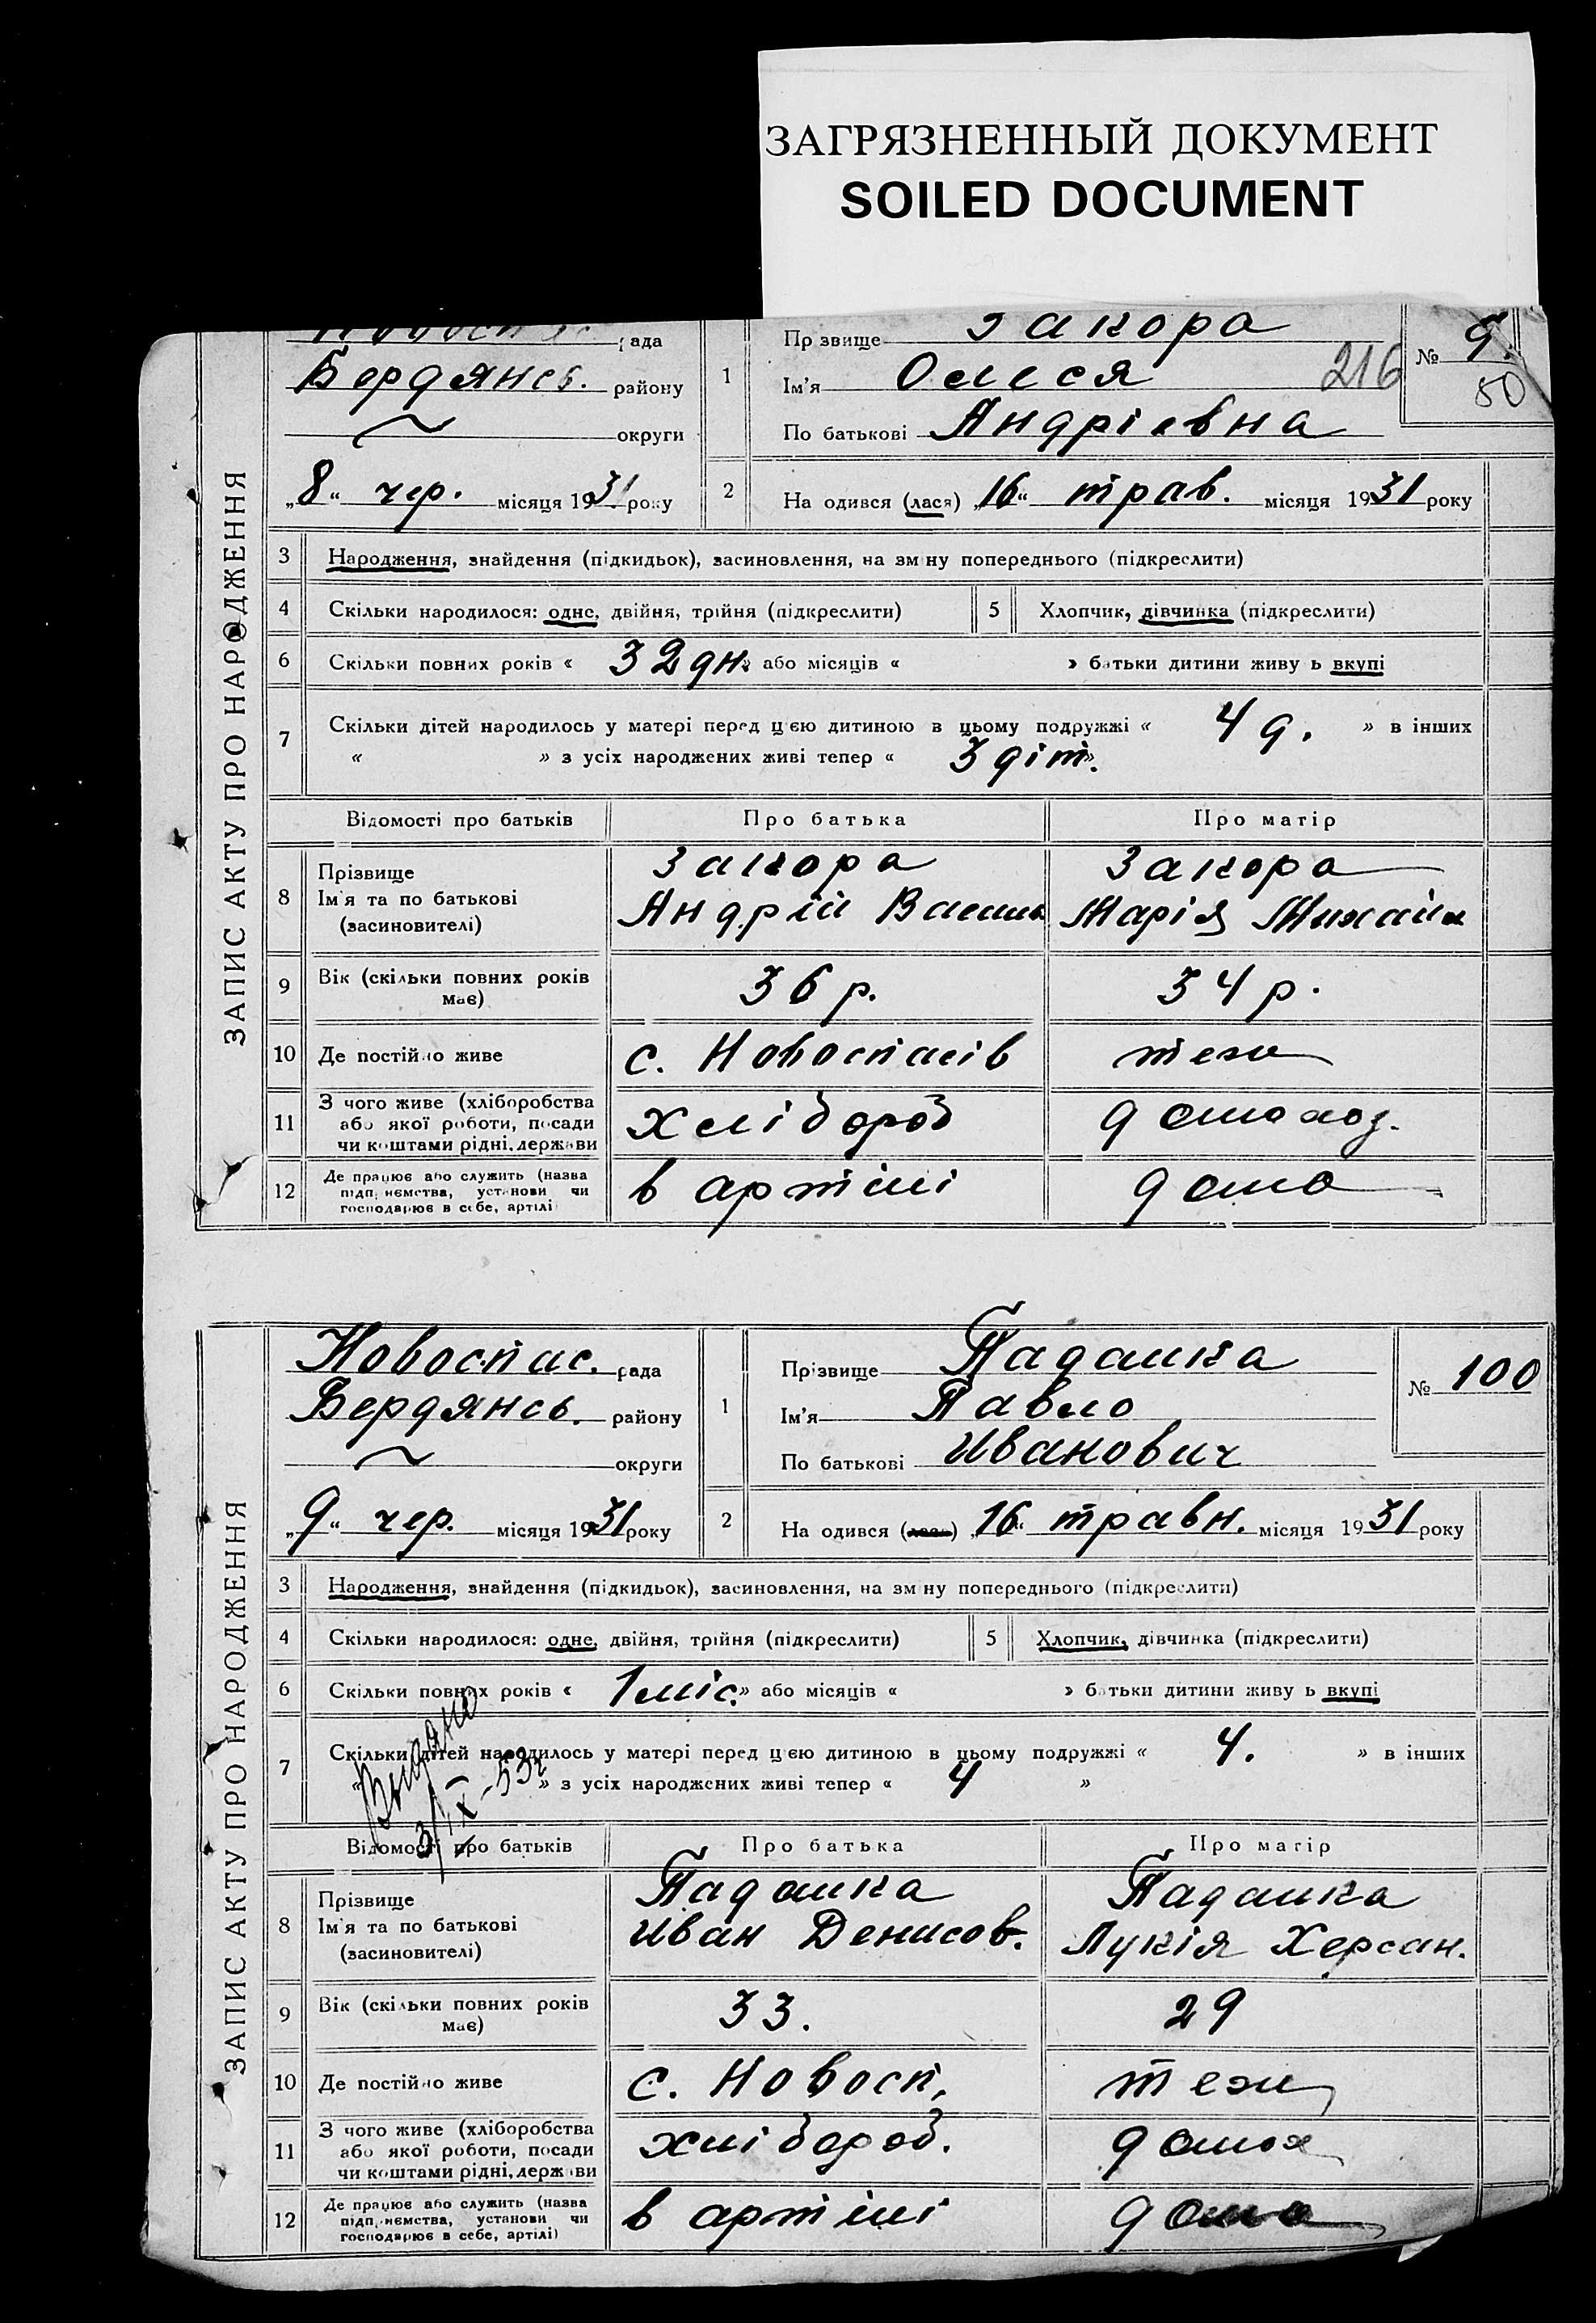 ЗАГРЯЗНЕННЫЙ ДОКУМЕНТ
SOILED DOCUMENT
ЗАПИС АКТУ ПРО НАРОДЖЕННЯ
рада
Бердянсь. району
округи
„8“ чер. місяця 1931 року
1
Прізвище Закора
Ім'я Олеся
По батькові Андрієвна
216
№ 9.
50
2 На одився (лася) „16“ трав. місяця 1931 року
3 Народження, знайдення (підкидьок), засиновлення, на зм ну попереднього (підкреслити)
4 Скільки народилося: одне, двійня, трійня (підкреслити) 5 Хлопчик, дівчинка (підкреслити)
6 Скільки повних років « 32 дн. » або місяців « » батьки дитини живу ь вкупі
7 Скільки дітей народилось у матері перед цією дитиною в цьому подружжі « 4 д. » в інших
« » з усіх народжених живі тепер « 3 діт. »
Відомості про батьків Про батька Про матір
8 Прізвище Закора Закора
Ім'я та по батькові Андрій Васильн Марія Михайл
(засиновителі)
9 Вік (скільки повних років має) 36 р. 34 р.
10 Де постійно живе с. Новоспасів теж
11 З чого живе (хліборобства або якої роботи, посади чи коштами рідні, держави хлібороб домохоз.
12 Де працює або служить (назва підприємства, установи чи господарює в себе, артілі) в артілі дома
ЗАПИС АКТУ ПРО НАРОДЖЕННЯ
Новоспас. рада
Бердянсь. району
округи
„9“ чер. місяця 1931 року
1
Прізвище Падалка
Ім'я Павло
По батькові Иванович
№ 100
2 На одився (лася) „16“ травн. місяця 1931 року
3 Народження, знайдення (підкидьок), засиновлення, на зм ну попереднього (підкреслити)
4 Скільки народилося: одне, двійня, трійня (підкреслити) 5 Хлопчик, дівчинка (підкреслити)
6 Скільки повних років « 1 міс. » або місяців « » батьки дитини живу ь вкупі
7 Скільки дітей народилось у матері перед цією дитиною в цьому подружжі « 4. » в інших
« » з усіх народжених живі тепер « 4 »
Выдано
3/IX-53г
Відомості про батьків Про батька Про матір
8 Прізвище Падалка Падалка
Ім'я та по батькові Иван Денисов. Лукія Херсан.
(засиновителі)
9 Вік (скільки повних років має) 33. 29
10 Де постійно живе с. Новосп, теж
11 З чого живе (хліборобства або якої роботи, посади чи коштами рідні, держави хлібороб. домох
12 Де працює або служить (назва підприємства, установи чи господарює в себе, артілі) в артілі дома